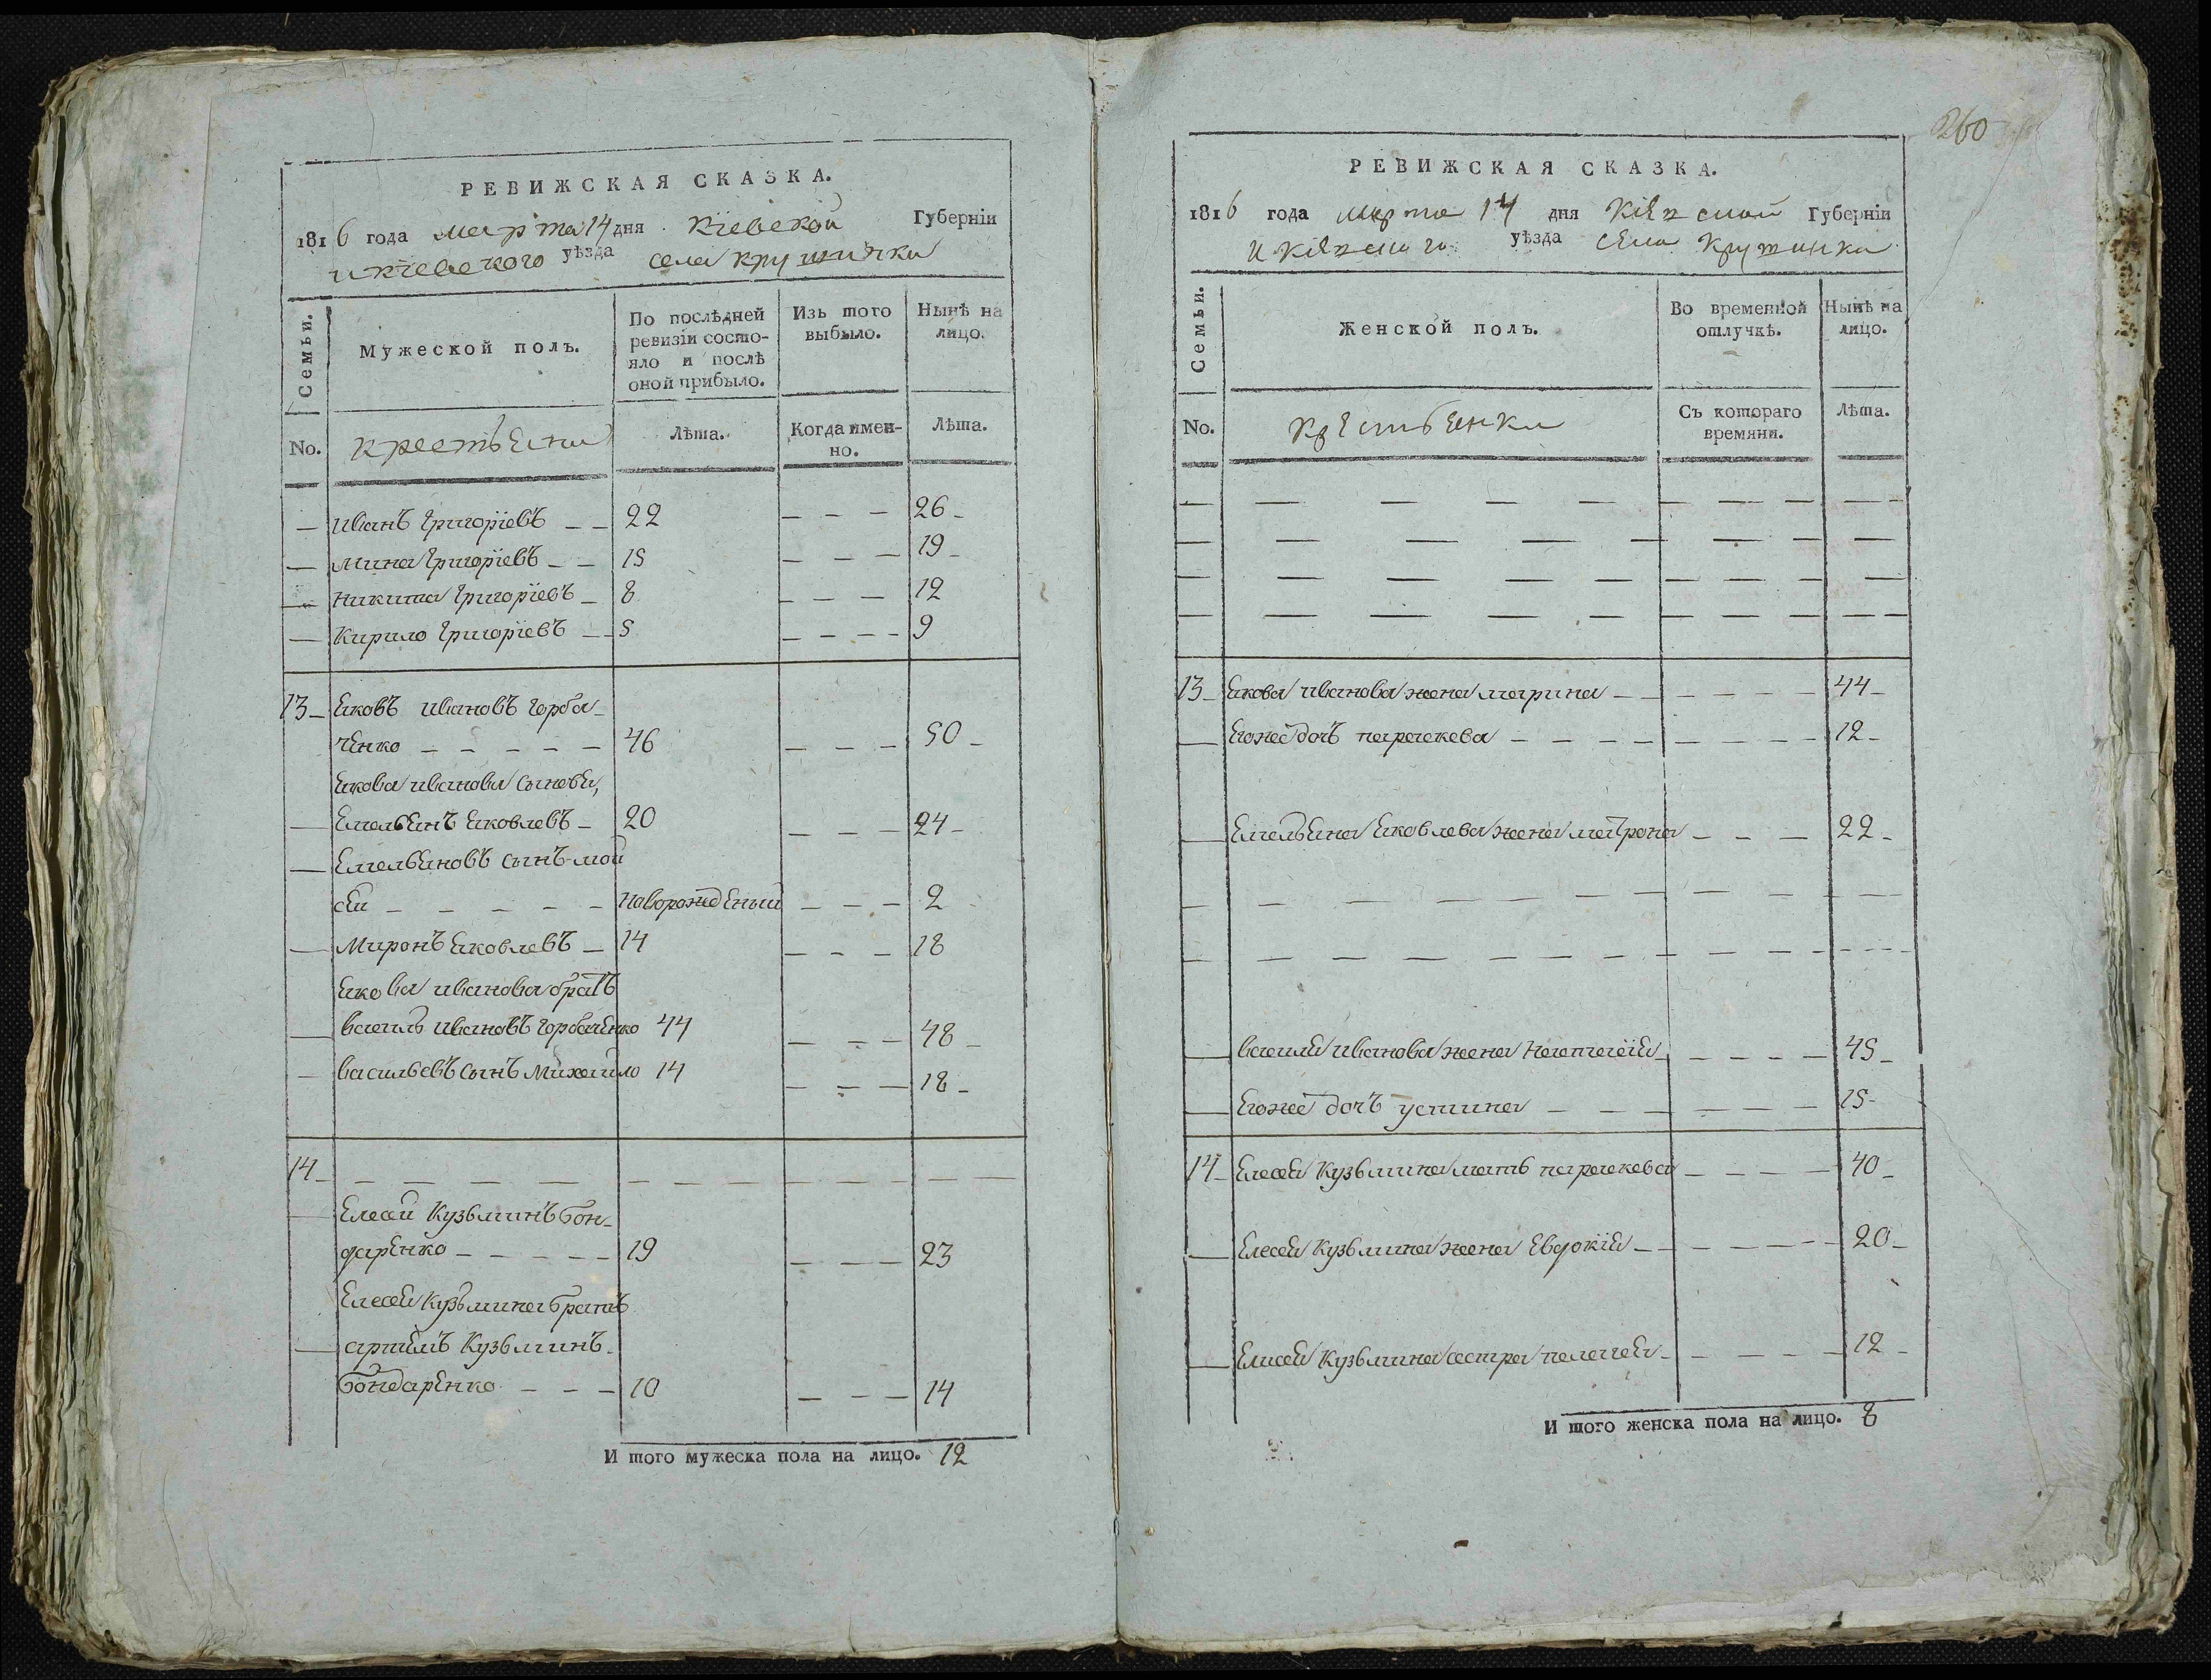 РЕВИЖСКАЯ СКАЗКА.
1816 года марта 14 дня Кіевской Губерніи
и кіевского уѣзда села крушинки
Семьи.
Мужеской полъ.
По послѣдней
ревизіи состо-
яло и послѣ
оной прибыло.
Изъ того
выбыло.
Нынѣ на
лицо.
No.
крестьяни
Лѣта.
Когда имен-
но.
Лѣта.
— иванъ григоріевъ — — 22 — — — 26 —
— мина григоріевъ — — 15 — — — 19 —
— никита григоріевъ — 8 — — — 12
— Кирило григоріевъ — — 5 — — — — 9
13 — яковъ ивановъ горба-
ченко — — — — — 46 — — — 50 —
якова иванова сыновя,
— Емельянъ яковлевъ — 20 — — — 24 —
— Емельяновъ сынъ мой
сей — — — — — новорожденый — — — 2
— Миронъ яковлевъ — 14 — — — 18
якова иванова братъ
— василь ивановъ горбаченко 44 — — — 48 —
— васильевъ сынъ михайло 14 — — — 18 —
14 — — — — — — — — — — — — — —
— Елесей Кузьминъ бон-
даренко — — — — — 19 — — — 23
Елесея Кузьмина братъ
— артемъ Кузьминъ
бондаренко — — — 10 — — — 14
И того мужеска пола на лицо. 12
260
РЕВИЖСКАЯ СКАЗКА.
1816 года марта 14 дня Кіевской Губерніи
и Кіевского уѣзда села Крушинки
Семьи.
Женской полъ.
Во временной
отлучкѣ.
Нынѣ на
лицо.
No.
Крестьянки
Съ котораго
времяни.
Лѣта.
— — — — — — — — — — —
— — — — — — — — — — —
— — — — — — — — — — —
— — — — — — — — — — —
13 — якова иванова жена марина — — — — — — 44 —
— Егоже дочъ параскева — — — — — — — — 12 —
— Емельяна яковлева жена матрона — — — 22 —
— — — — — — — — — — — —
— — — — — — — — — — — —
— василя иванова жена настасія — — — — — 45 —
— Егоже дочъ устина — — — — — — — 15 —
14 — Елесея Кузьмина мать параскева — — — — 40 —
— Елесея Кузьмина жена Евдокія — — — — — — 20 —
— Елисея Кузьмина сестра пелагея — — — — — 12 —
И того женска пола на лицо. 8